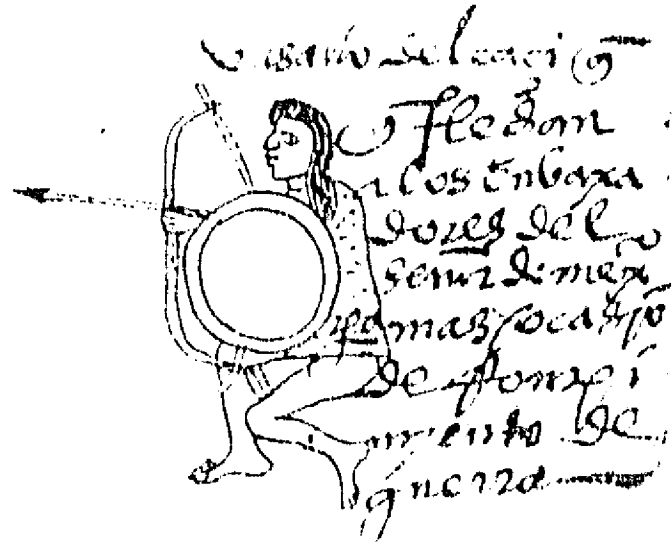 vasallo del caciq̄
q̄ flechan
a los enbaxa
dores del
señor de mexco
pa mas ocasion
de rompi
miento de
guerra